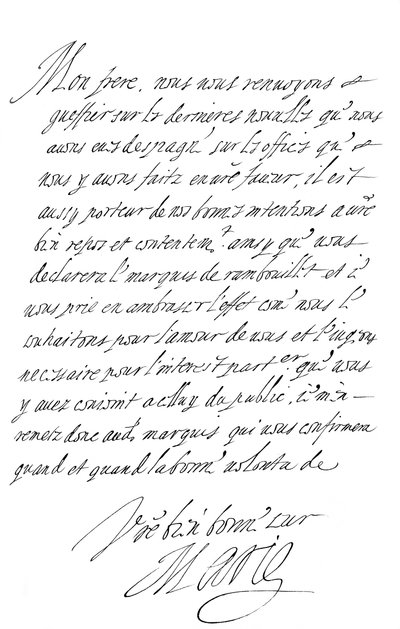 Mon frere, nous vous renvoyons
gueffier sur les dernieres nouvelles que nous
avons eues despagne sur les offices que
nous y avons faitz en vre faveur, il est
aussy porteur de nos bonnes intentions a vre
bien repos et contentemt. ainsy que vous
declarera le marquis de rambouillet et ie
vous prie en ambrasser l'effet come nous le
souhaitons pour l'amour de vous et le iugeons
necessaire pour l'interest parter. que vous
y avez conioint a celluy du public, ie m'en
remetz donc audt. marquis qui vous confirmera
quand et quand la bonne volonta de
Vre bien bonne sœur
Marie